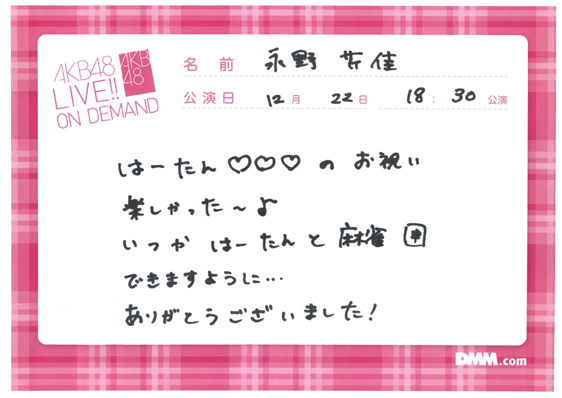 AKB48
LIVE!!
ON DEMAND
AKB
48
名前 永野 芹佳
公演日 12月 22日 18:30公演
はーたん♡♡♡のお祝い
楽しかった〜♪
いつか はーたんと麻雀🀄
できますように…
ありがとうございました!
DMM.com